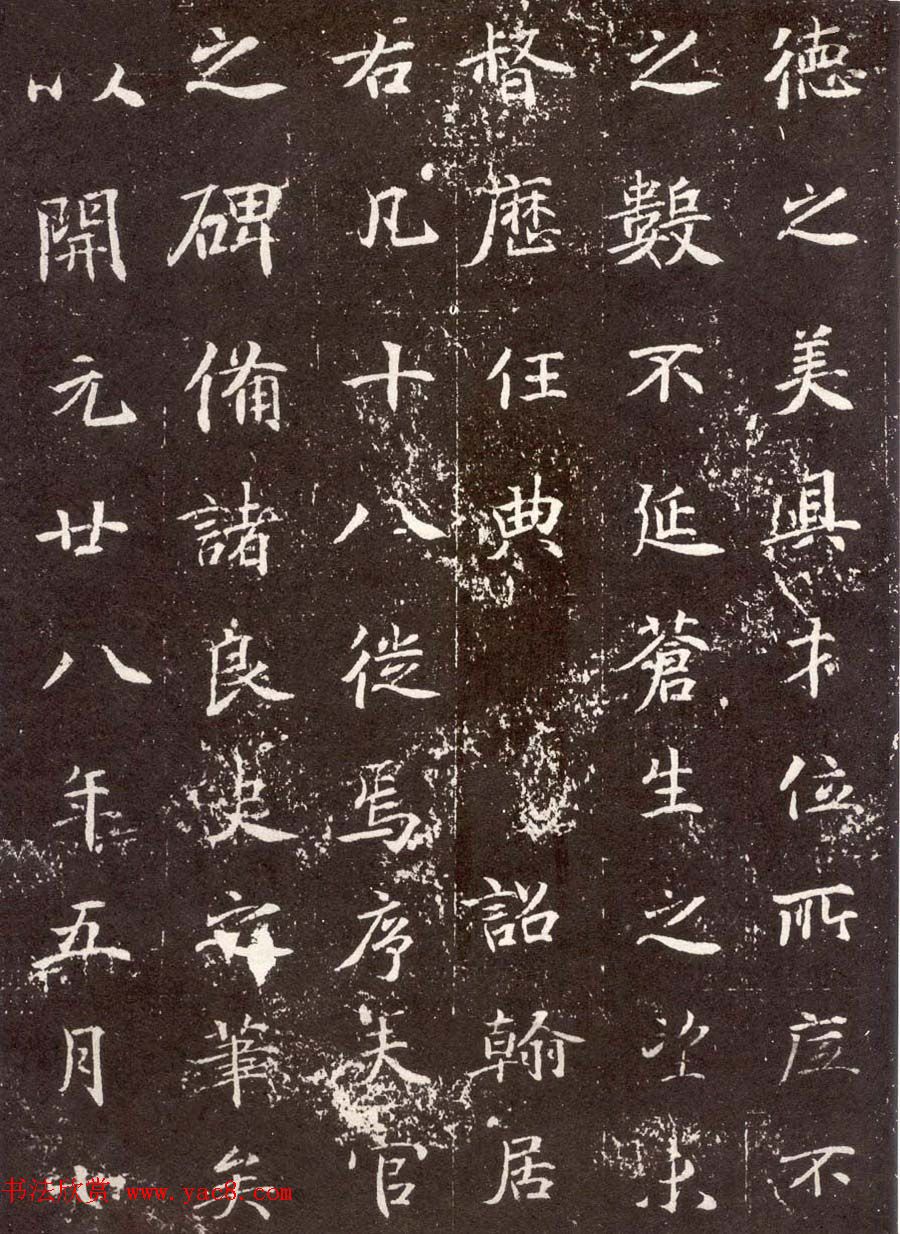 德之美與才位所应不
之數不延蒼生之望未
督歷任典詔翰居
右凡十八徙焉序夫官
之碑備諸良史安筆矣
以開元廿八年五月
书法欣赏 www.yac8.com